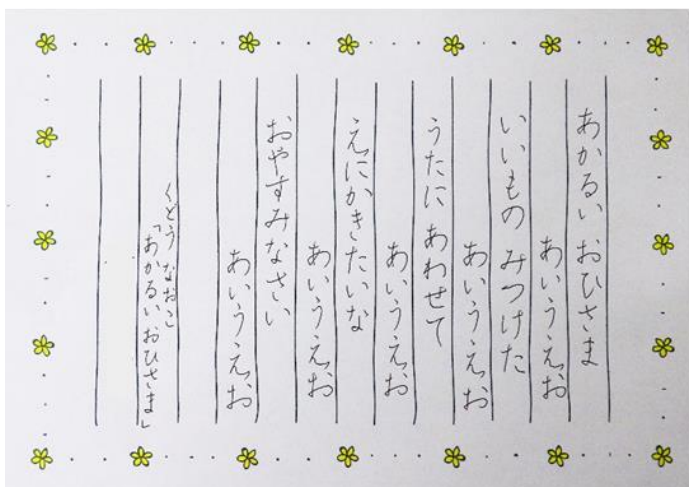 あかるい おひさま
あいうえお
いいもの みつけた
あいうえお
うたに あわせて
あいうえお
えにかきたいな
あいうえお
おやすみなさい
あいうえお
くどう なおこ
「あかるい おひさま」